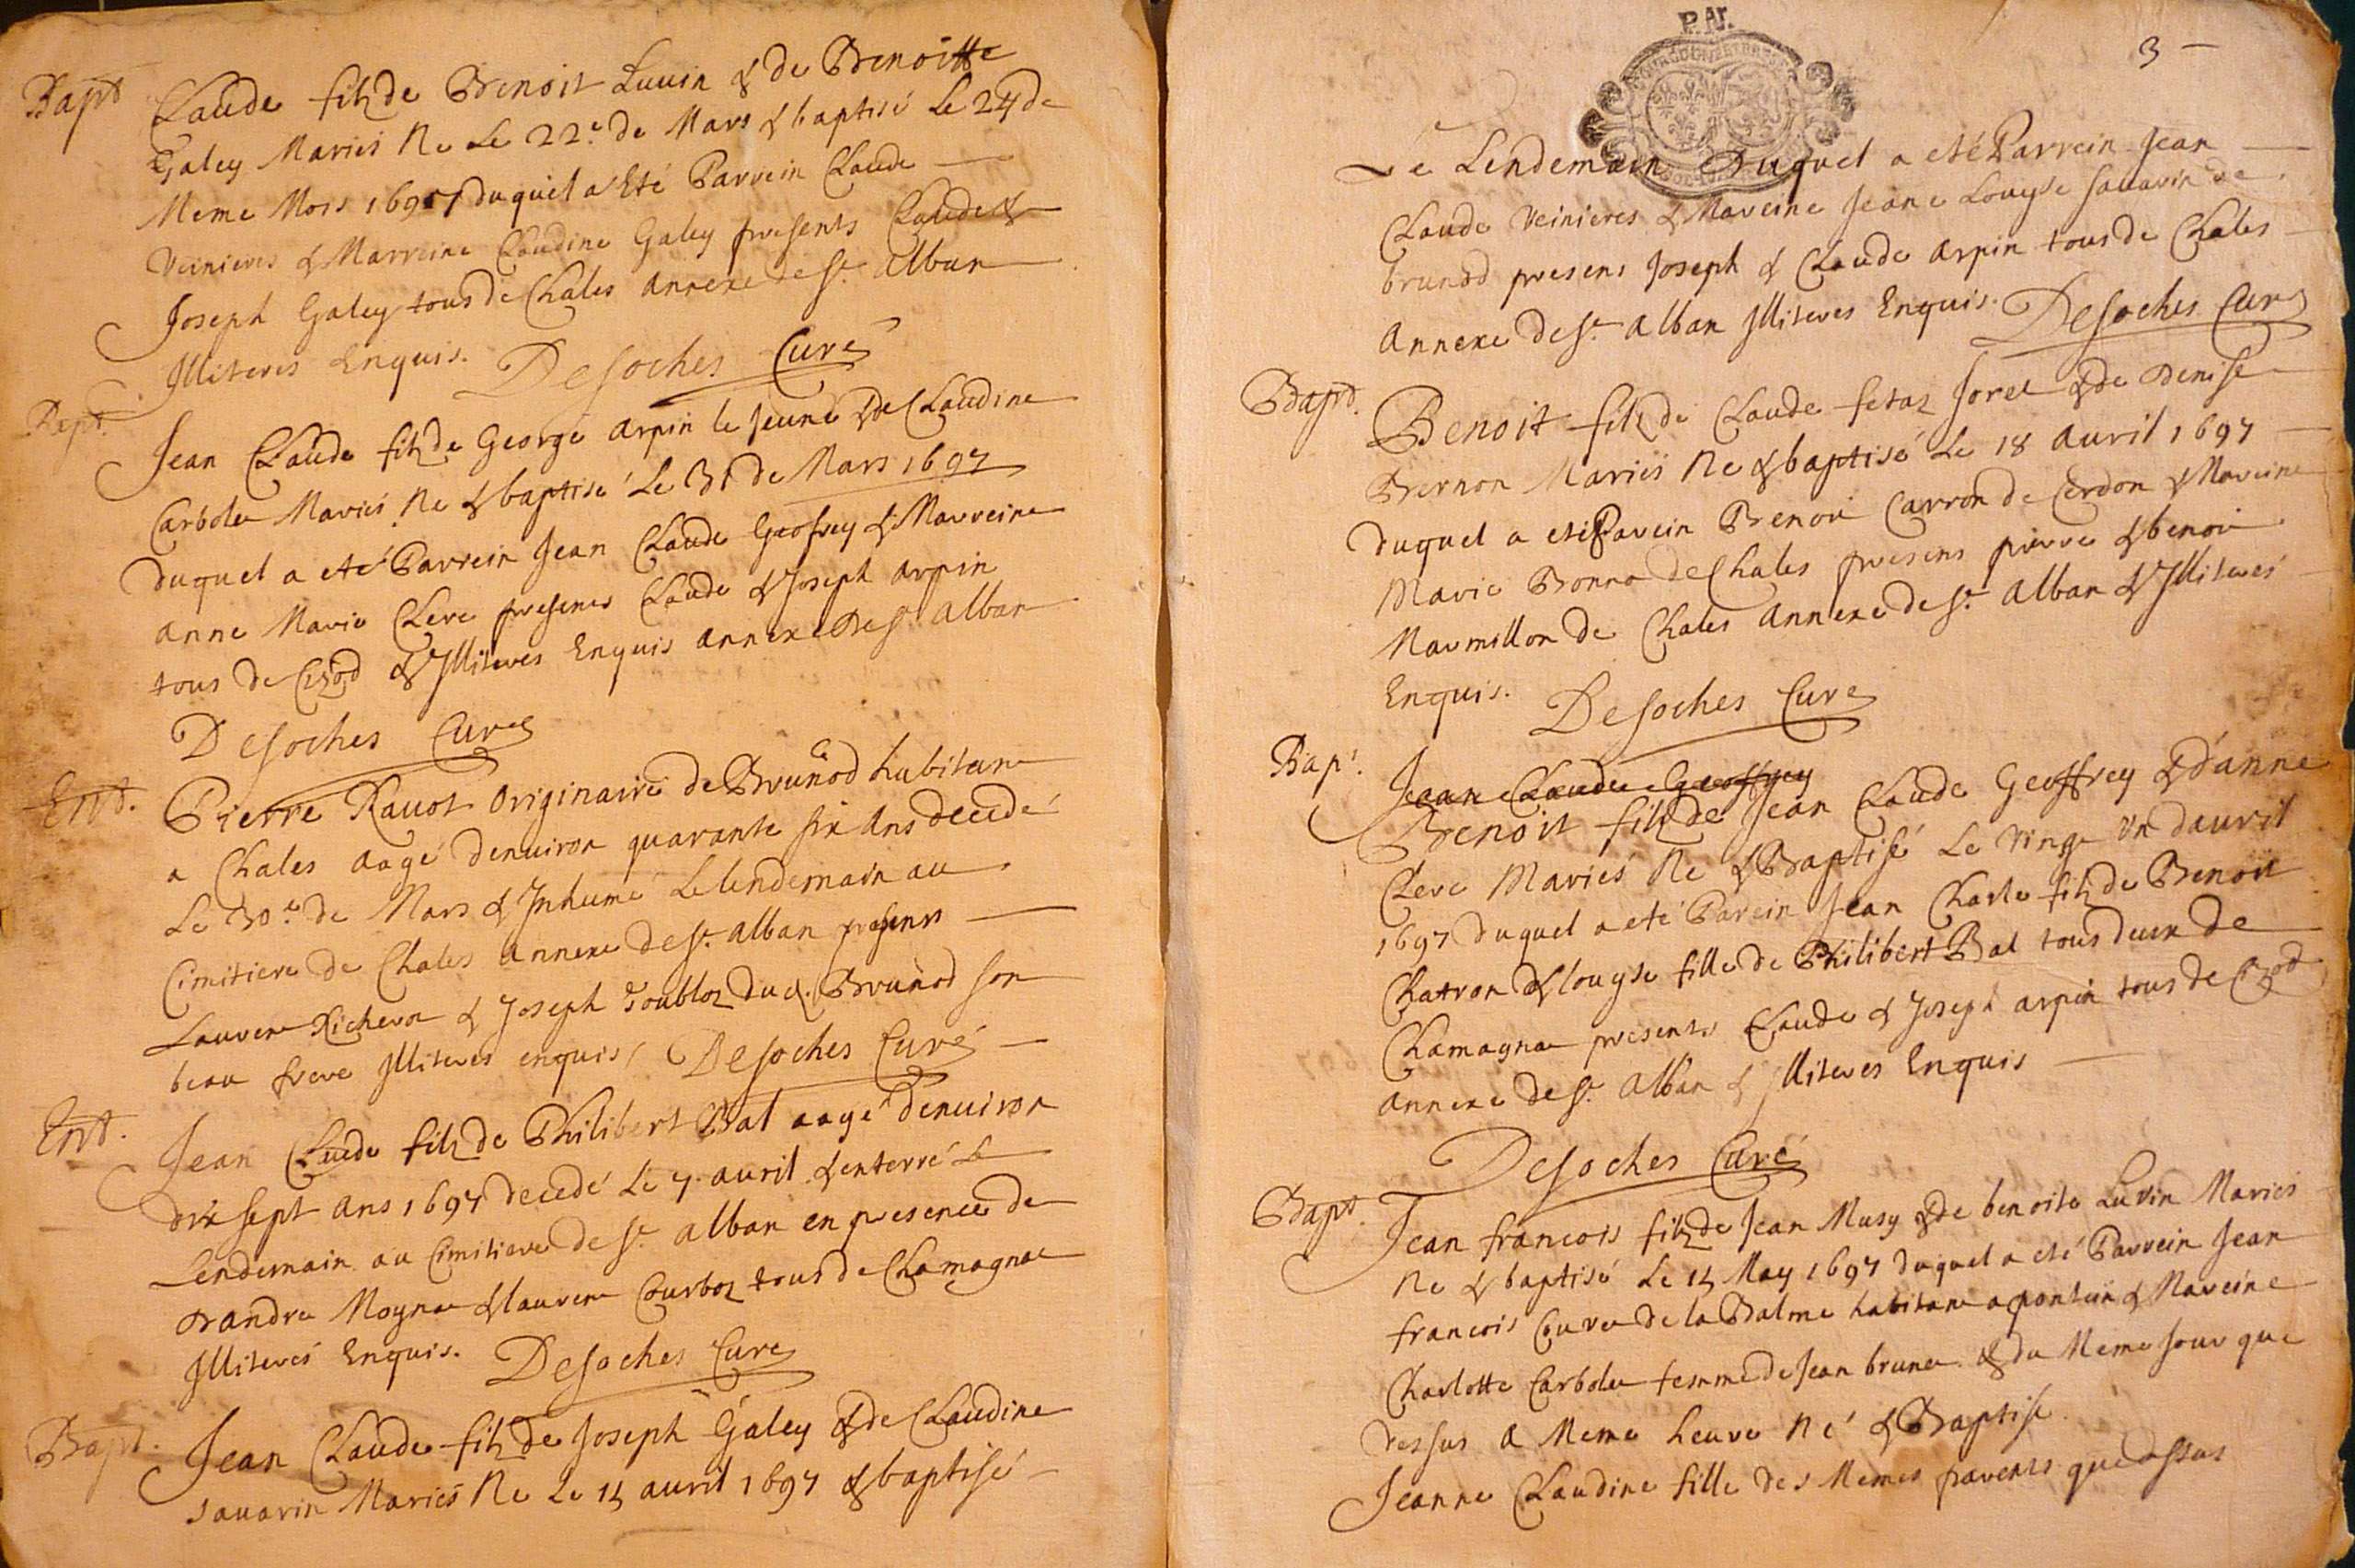 Bapt Claude filz de Benoit Luuin & de Benoitte
Galey Mariés Ne Le 22.e de Mars & baptisé Le 24 de
Meme Mois 1697 duquel a Eté Parrein Claude
Veinieres & Marreine Claudine Galey presents Claude &
Joseph Galey tous de Chales annexe de St. alban
Illiteres Enquis. Desoches Curé
Bapt. Jean Claude filz de George arpin le Jeune & de Claudine
Carbolet Mariés Ne & baptisé Le 31 de Mars 1697
duquel a eté Parrein Jean Claude Geofrey & Marreine
anne Marie Clere presents Claude & Joseph arpin
tous de Cizod & Illiteres Enquis annexe de St. alban
Desoches Curé
Ent. Pierre Rauot originaire de Brunod habitant
a Chales aagé denuiron quarante six ans decedé
Le 30.e de Mars & Inhumé Le lendemain au
Cimitiere de Chales annexe de St. alban presents
Laurent Richerot & Joseph Toubloz dud. Brunod son
beau frere Illiteres enquis, Desoches Curé
Ent. Jean Claude filz de Philibert Bal aagé denuiron
dix sept ans 1697 decedé Le 7. auril & enterré Le
Lendemain au Cimitiere de St. alban en presence de
dandre Moyne & laurent Courboz tous de Chamagnat
Illiterés Enquis. Desoches Curé
Bapt. Jean Claude filz de Joseph Galey & de Claudine
sauarin Mariés Ne Le 15 auril 1697 & baptisé
3
P. Ar.
Le Lendemain Duquel a eté Parrein Jean
Claude Veinieres & Mareine Jeane Louyse sauarin de
brunod presens Joseph & Claude arpin tous de Chales
annexe de St. alban Illiteres Enquis. Desoches Curé
Bapt. Benoit filz de Claude fetaz Jorel & de Denise
Bernon Mariés Ne & baptisé Le 18 auril 1697
duquel a eté Parein Benoit Carron de Cerdon & Mareine
Marie Bonna de Chales presens pierre & benoit
Marmillon de Chales annexe de St. alban & Illiterés
Enquis. Desoches Curé
Bapt. Jean Claude Geoffrey
Benoit filz de Jean Claude Geoffrey & d'anne
Clere Mariés Ne & Baptisé Le Vingt Un dauril
1697 duquel a eté Parein Jean Charle filz de Benoit
Chatron & louyse fille de Philibert Bal tous deux de
Chamagnat presents Claude & Joseph arpin tous de Cizod
annexe de St. alban & Illiteres Enquis
Desoches Curé
Bapt. Jean francois filz de Jean Musy & de benoite Luuin Mariés
Ne & baptisé Le 15 May 1697 duquel a eté Parrein Jean
francois Couret de la Balme habitant a pontein & Mareine
Charlotte Carbolet femme de Jean brunet & du Meme Jour que
dessus a Meme heure Né & Baptisé
Jeanne Claudine fille des Memes parents que dessus